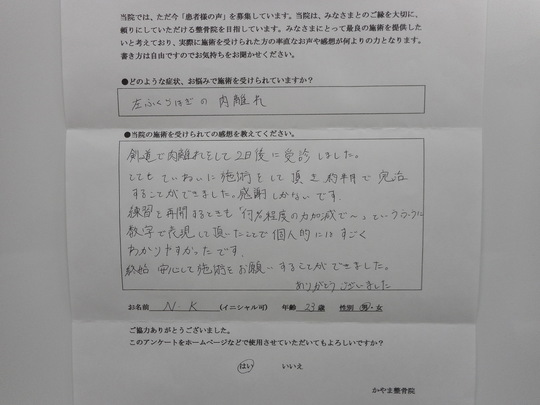 当院では、ただ今「患者様の声」を募集しています。当院は、みなさまとのご縁を大切に、
頼りにしていただける整骨院を目指しています。みなさまにとって最良の施術を提供した
いと考えており、実際に施術を受けられた方の率直なお声や感想が何よりの力となります。
書き方は自由ですのでお気持ちをお聞かせください。
●どのような症状、お悩みで施術を受けられていますか？
左ふくらはぎの肉離れ
●当院の施術を受けられての感想を教えてください。
剣道で肉離れをして2日後に受診しました。
とてもていねいに施術をして頂き約半月で完治
することができました。感謝しかないです。
練習を再開するときも「何%程度の力加減で〜」というふうに
数字で表現して頂いたことで個人的にはすごく
わかりやすかったです。
終始安心して施術をお願いすることができました。
ありがとうございました
お名前 N.K (イニシャル可) 年齢 23歳 性別 男・女
ご協力ありがとうございました。
このアンケートをホームページなどで使用させていただいてもよろしいですか？
はい いいえ
かやま整骨院